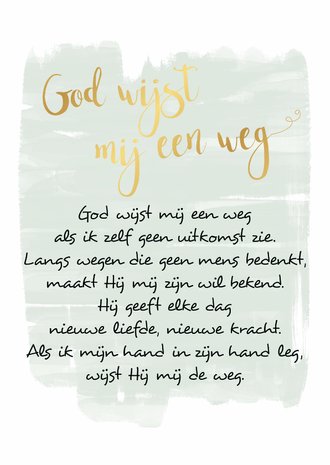 God wijst
mij een weg
God wijst mij een weg
als ik zelf geen uitkomst zie.
Langs wegen die geen mens bedenkt,
maakt Hij mij zijn wil bekend.
Hij geeft elke dag
nieuwe liefde, nieuwe kracht.
Als ik mijn hand in zijn hand leg,
wijst Hij mij de weg.